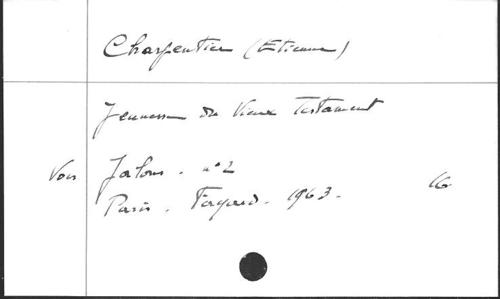 Charpentier (Etienne)
Jeunesse du Vieux Testament
Voir Jalons. n°2
Paris. Fayard. 1963. 16